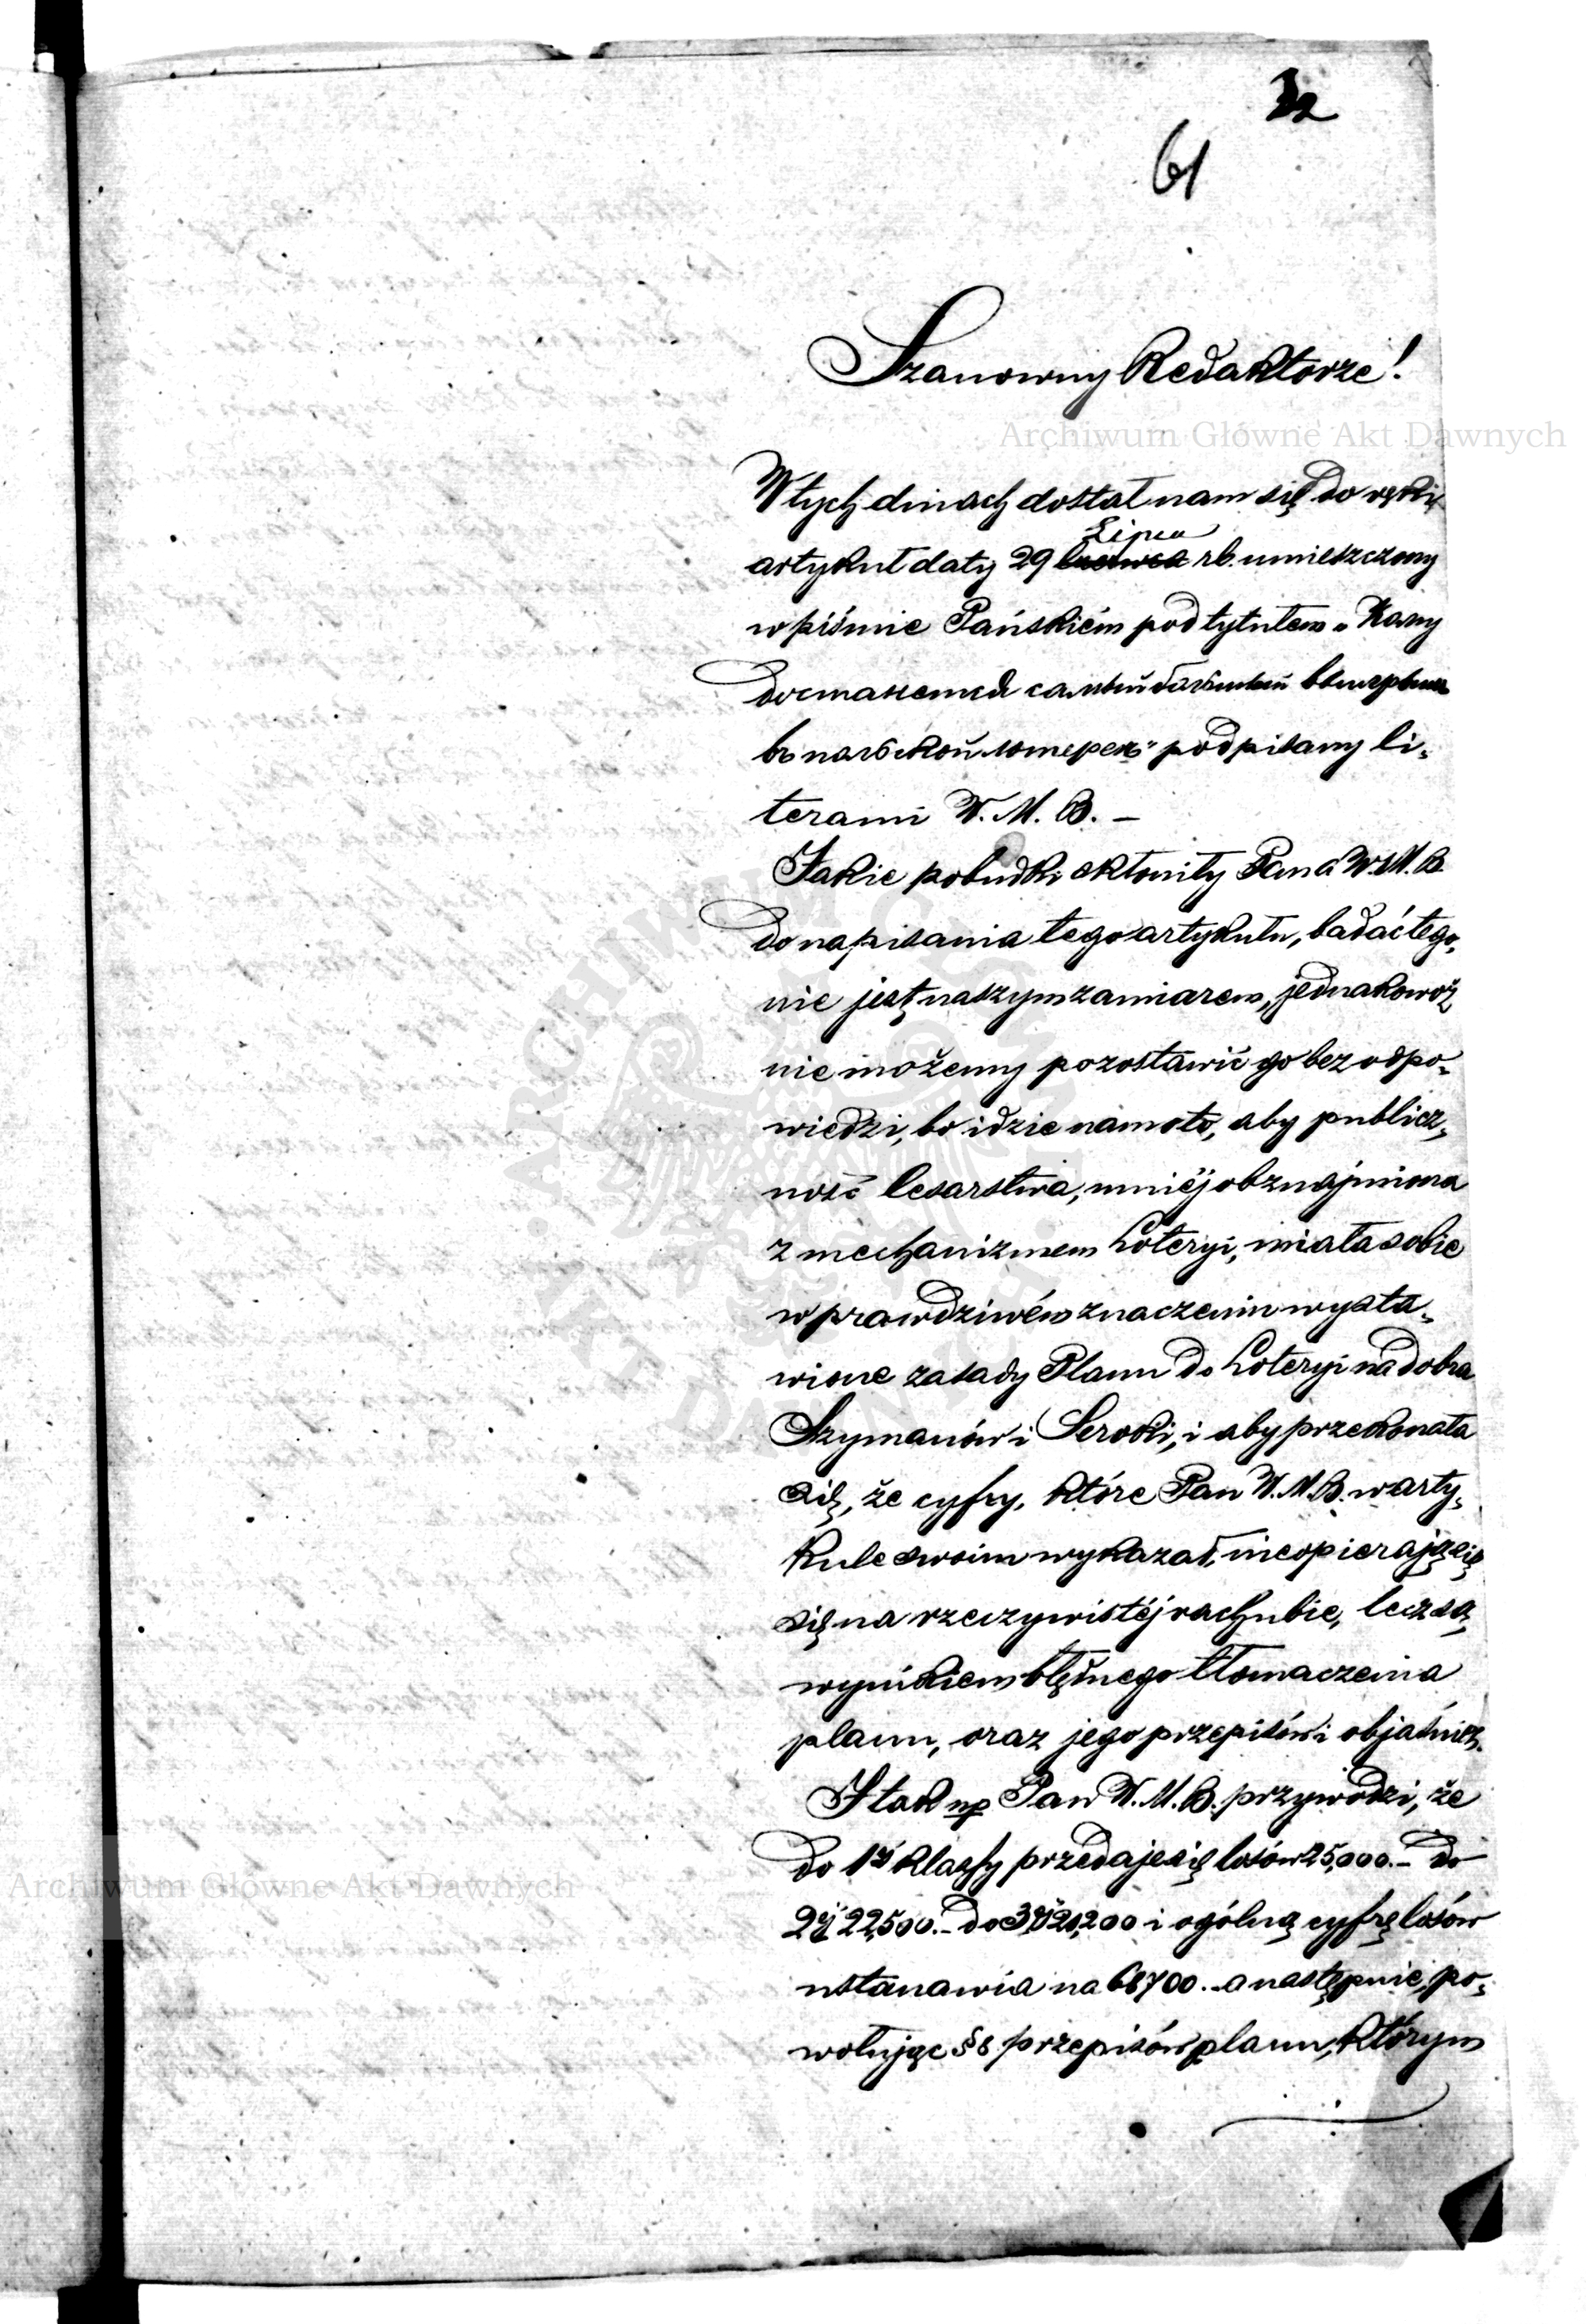 32
61
Szanowny Redaktorze!
Archiwum Główne Akt Dawnych
W tych dniach dostał nam się do ręki
Lipca
artykuł daty 29 czerwca rb. umieszczony
w piśmie Pańskiém pod tytułem „Кому
достанется самый большой выигрышъ
въ польской лотереѣ" podpisany li-
terami W. M. B. –
Jakie pobudki skłoniły Pana W. M. B.
do napisania tego artykułu, badać tego,
nie jest naszym zamiarem, jednakowoż
nie możemy pozostawić go bez odpo-
wiedzi, bo idzie nam oto, aby publicz-
ność Cesarstwa, mniéj obznajmiona
z mechanizmem Loteryi, miała sobie
w prawdziwém znaczeniu wysta-
wione zasady Planu do Loteryi na dobra
Szymanów i Seroki, i aby przekonała
się, że cyfry, które Pan W. M. B. w arty-
kule swoim wykazał, nieopierają się
się na rzeczywistéj rachubie, lecz są
wynikiem błędnego tłomaczenia
planu, oraz jego przepisów i objaśnień.
I tak np Pan W. M. B. przywodzi, że
do 1éj klassy przedaje się losów 25,000. – do
2éj 22,500. – do 3éj 21,200 i ogólną cyfrę losów
ustanawia na 68700. – a następnie, po-
wołując §8 przepisów planu, którym
Archiwum Główne Akt Dawnych